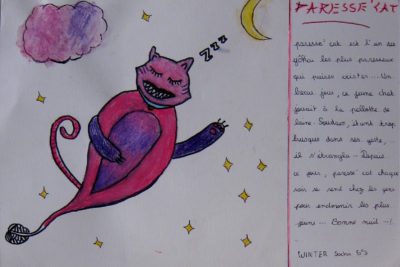 PARESSE'CAT
zzz
paresse' cat est l'un des
gôtha les plus paresseux
qui puisse exister... Un
beau jour, ce jeune chat
jouait à la pelotte de
laine. Soudain, étant trop
brusque dans ses gestes,
il s'étrangla. Depuis
ce jour, paresse' cat chaque
soir se rend chez les gens
pour endormir les plus
jeunes... Bonne nuit...!
WINTER